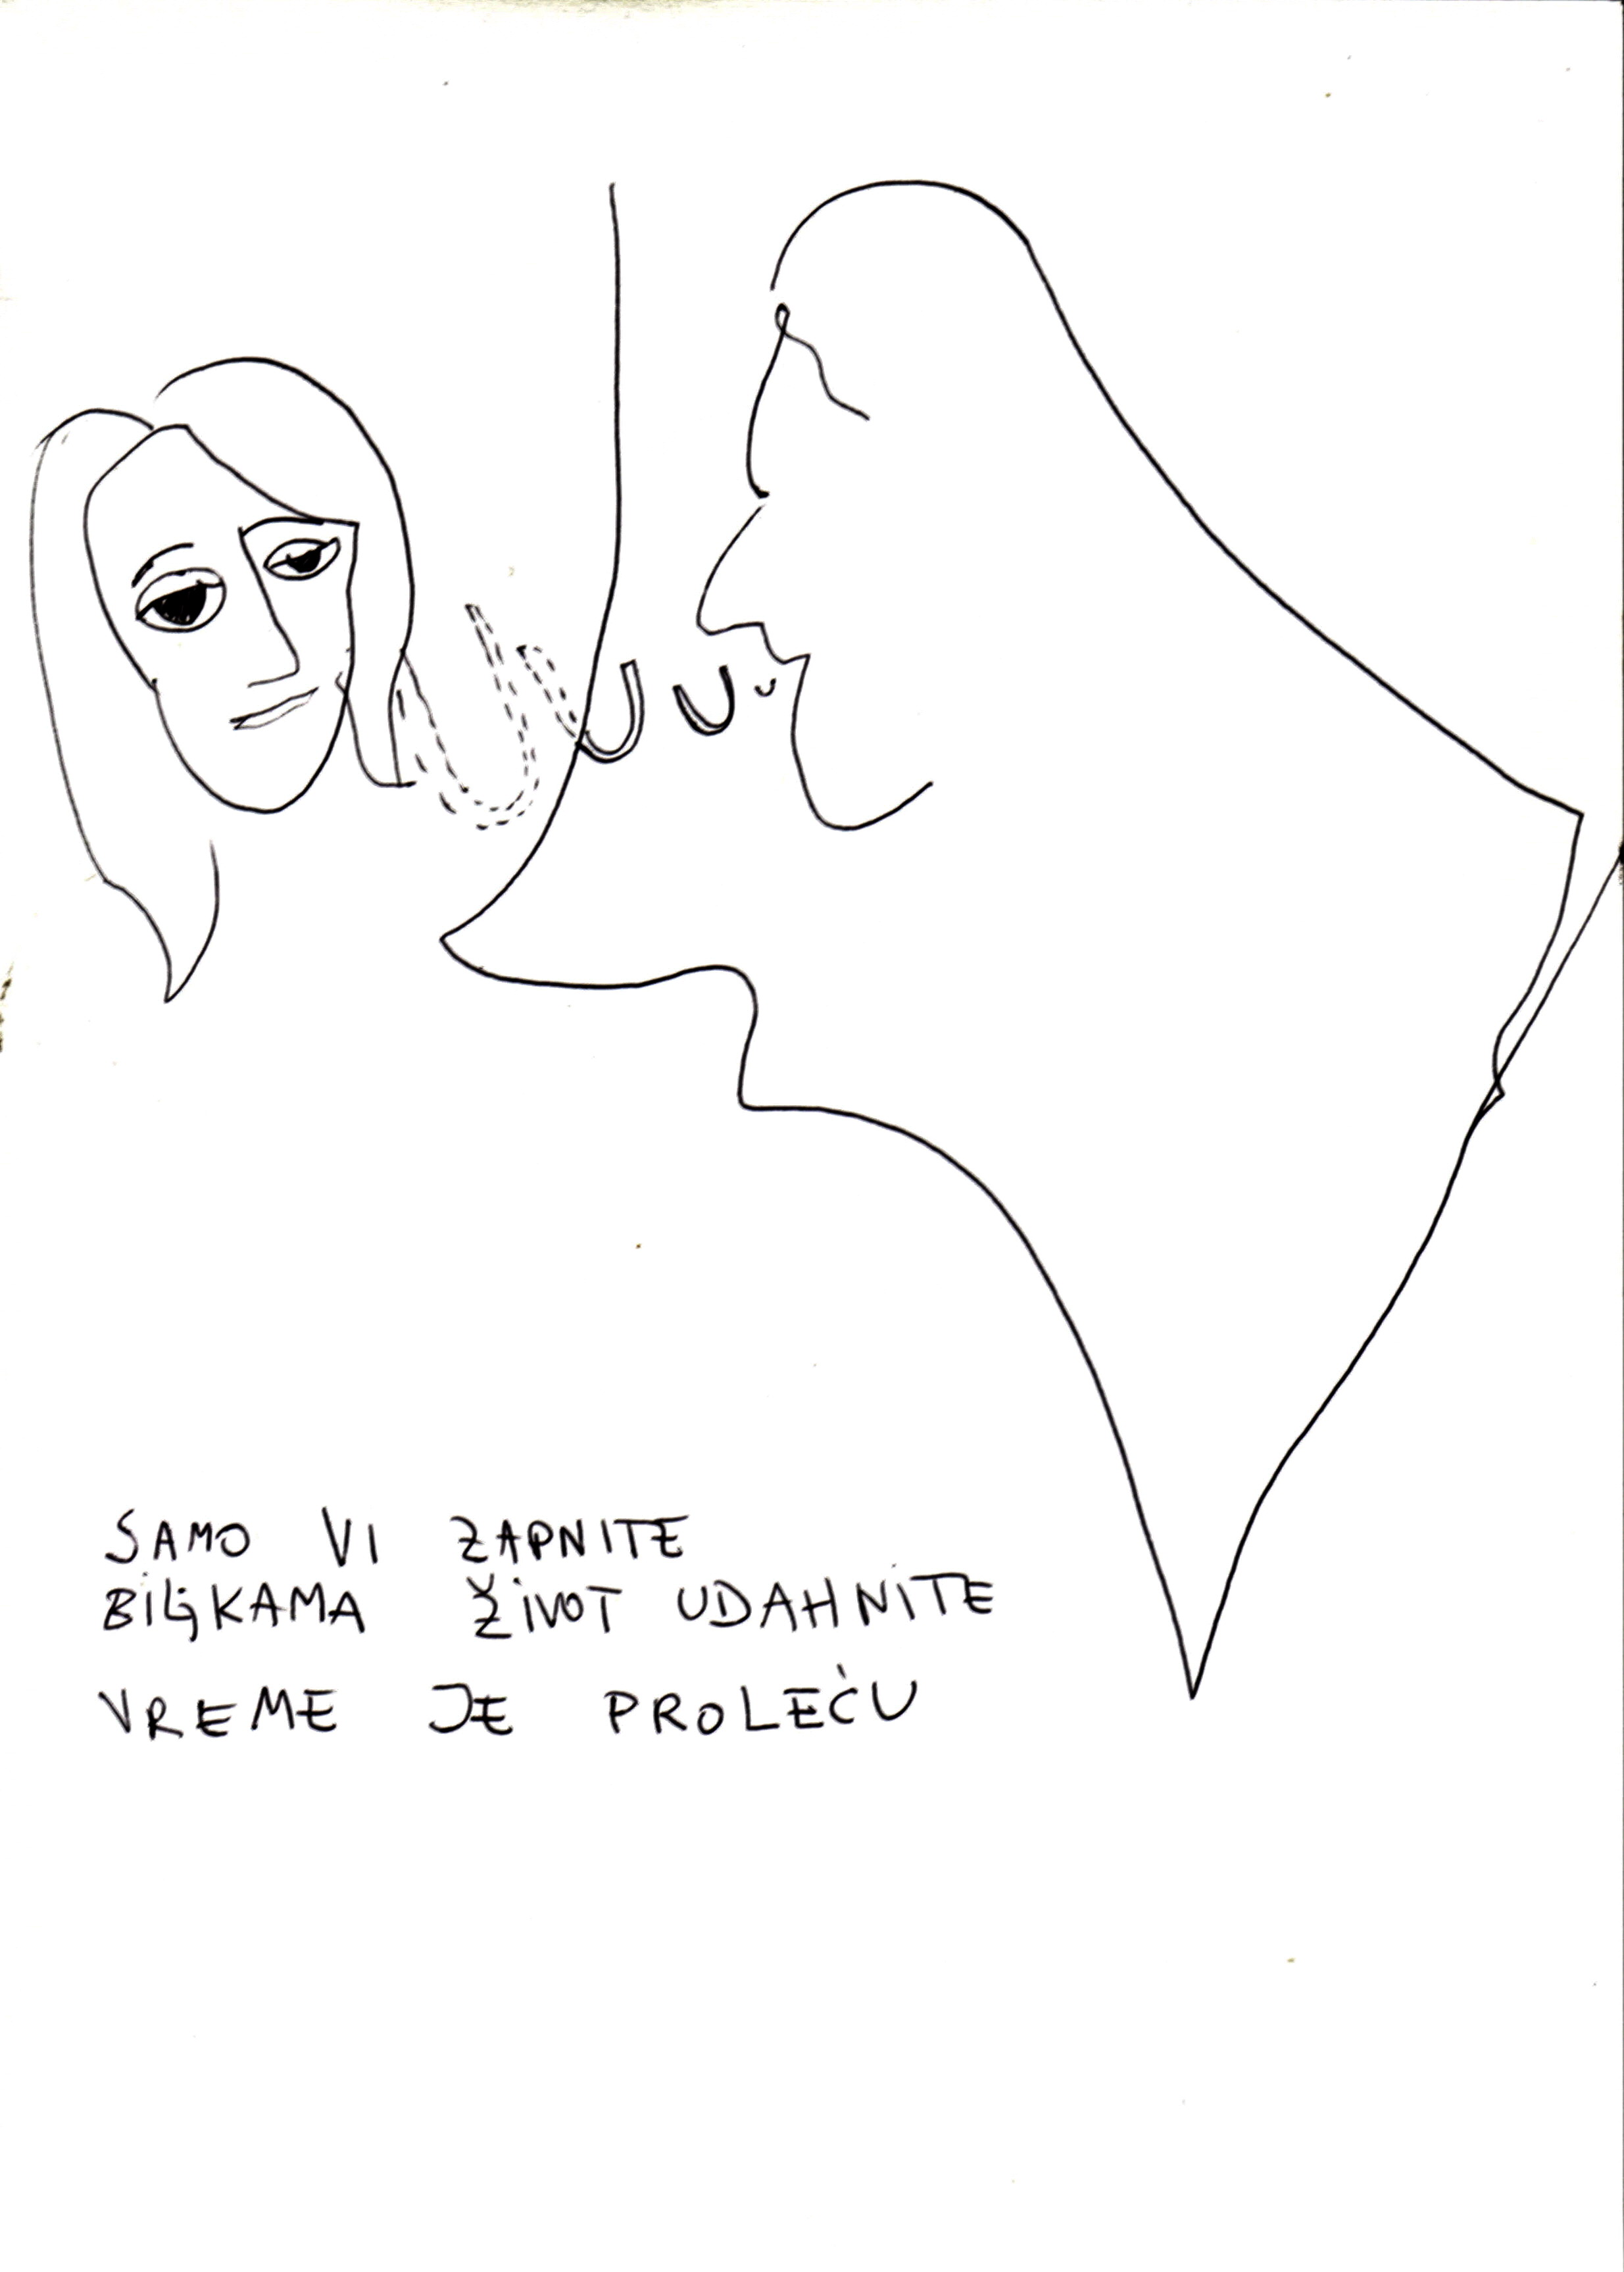 U U U
SAMO VI ZAPNITE
BILJKAMA ŽIVOT UDAHNITE
VREME JE PROLEĆU